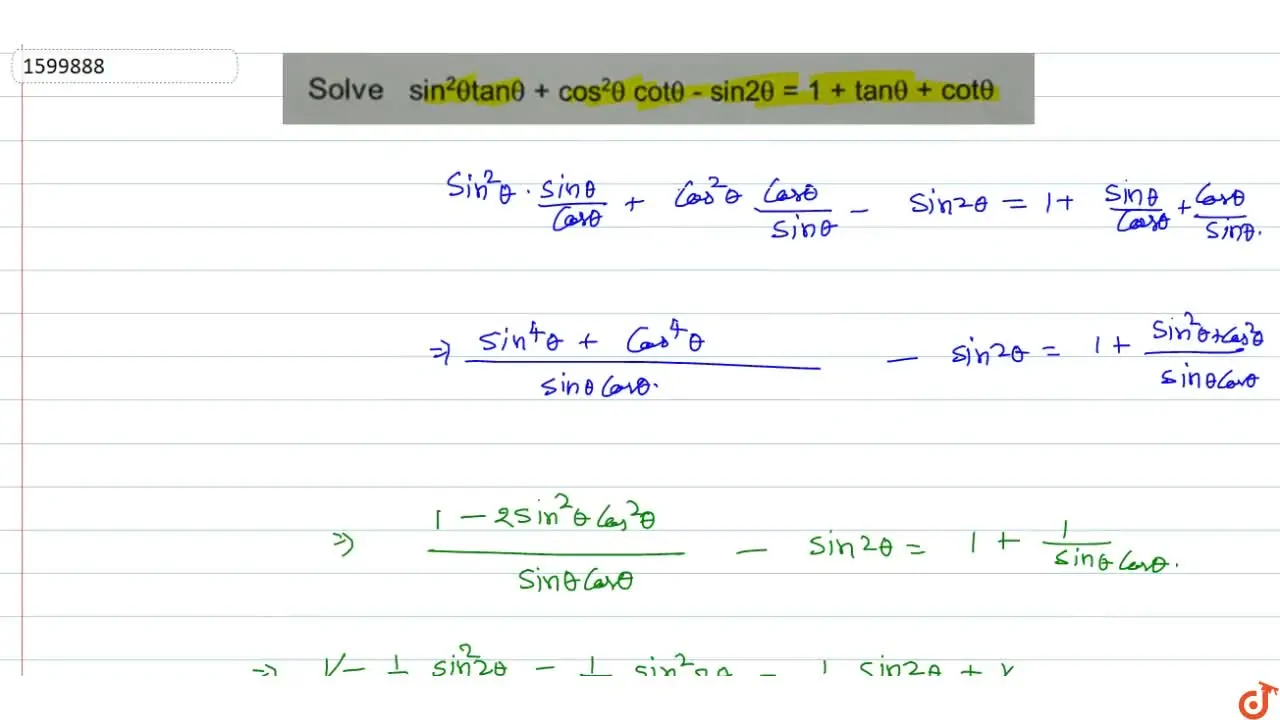 1599888
Solve sin²θtanθ + cos²θ cotθ - sin2θ = 1 + tanθ + cotθ
Sin²θ · sinθ/Cosθ + Cos²θ Cosθ/sinθ - sin2θ = 1 + sinθ/Cosθ + Cosθ/sinθ.
⇒ sin⁴θ + Cos⁴θ/sinθ Cosθ. - sin2θ = 1 + sin²θ+cos²θ/sinθ Cosθ
⇒ 1 - 2sin²θ Cos²θ/sinθ Cosθ - sin2θ = 1 + 1/sinθ Cosθ.
⇒ 1 - 1 sin²2θ - 1 sin²2θ = 1 sin2θ + 1